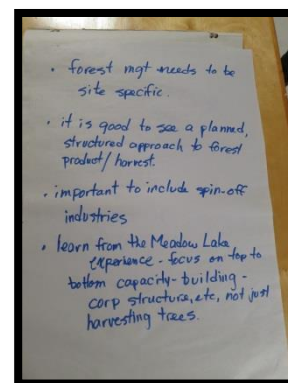 • forest mgt needs to be
site specific.
• it is good to see a planned,
structured approach to forest
product/harvest.
• important to include spin-off
industries
• learn from the Meadow Lake
experience - focus on top to
bottom capacity-building -
corp structure, etc, not just
harvesting trees.